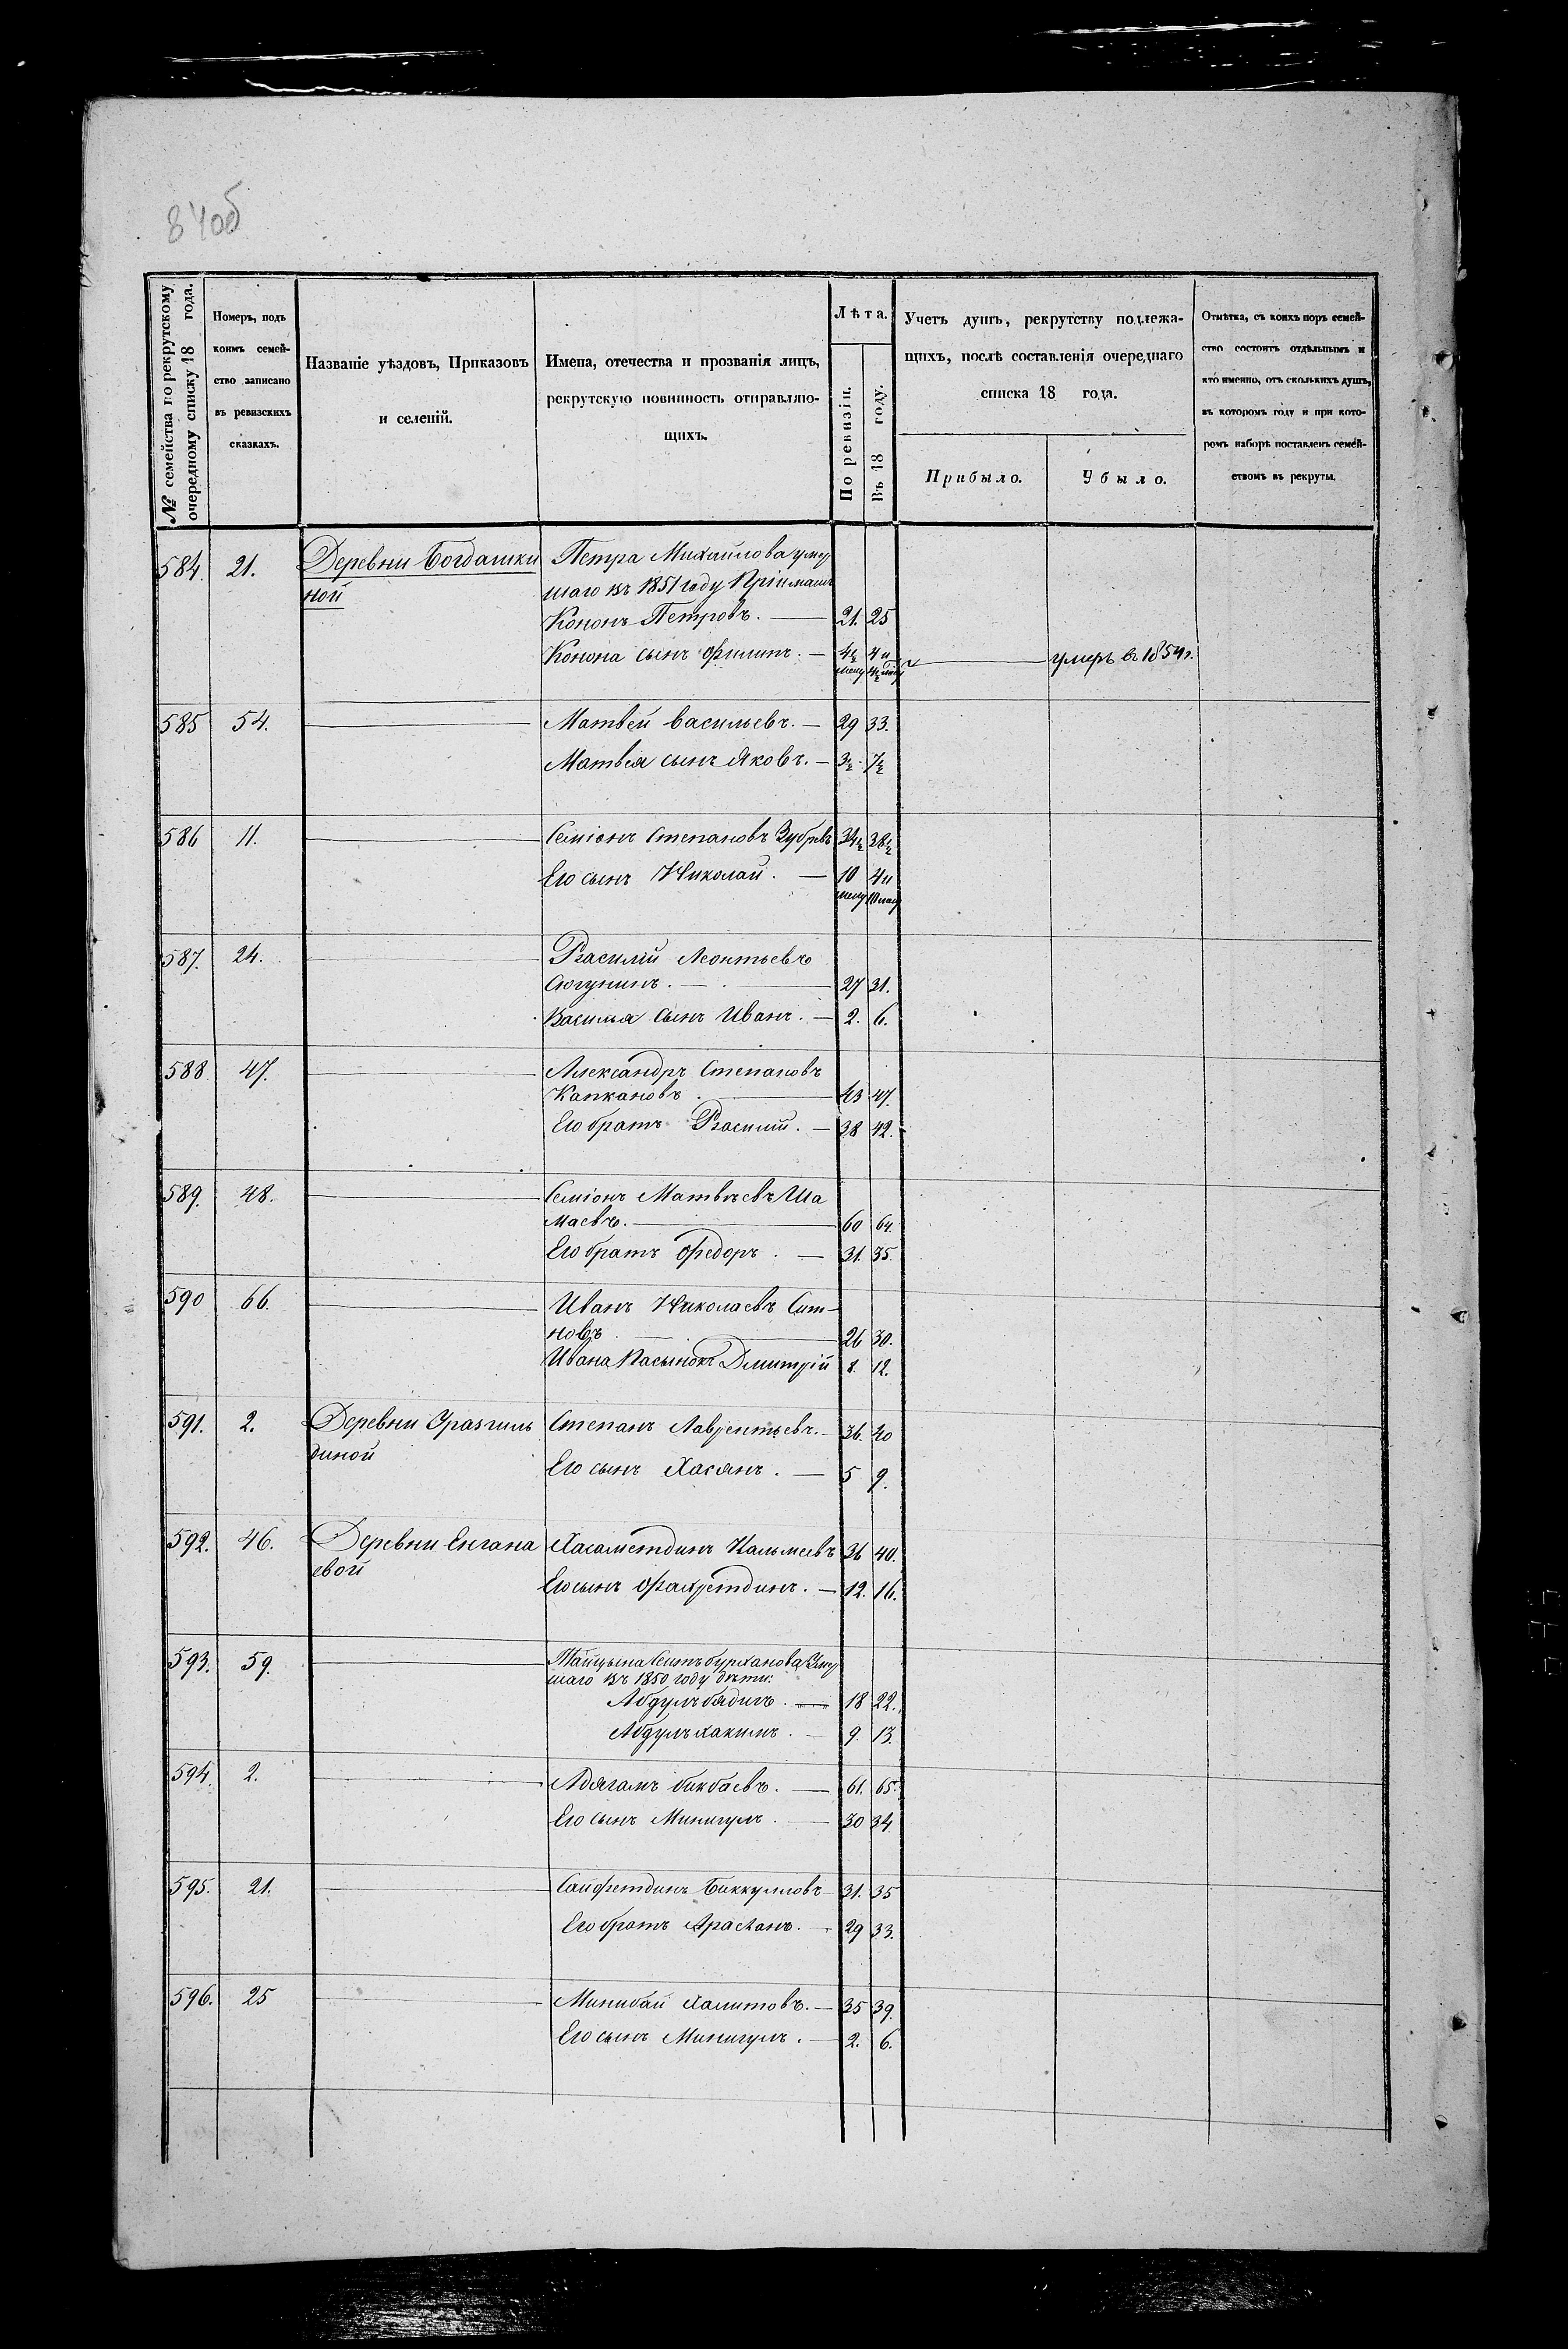 84об
№ семейства по рекрутскому очередному списку 18 года.
Номеръ, подъ коимъ семейство записано въ ревизскихъ сказкахъ.
Названіе уѣздовъ, Приказовъ
и селеній.
Имена, отечества и прозванія лицъ,
рекрутскую повинность отправляющихъ.
Лѣта.
По ревизіи.
Въ 18 году.
Учетъ душъ, рекрутству подлежащихъ, послѣ составленія очереднаго
списка 18 года.
Прибыло.
Убыло.
Отмѣтка, съ коихъ поръ семейство состоитъ отдѣльнымъ и
кто именно, отъ сколькихъ душъ,
въ котораго году и при которомъ наборѣ поставленъ семействомъ въ рекруты.
584. 21. Деревни Богдашки Петра Михайлова умер
ной шаго въ 1851 году Пріимашъ
Кононъ Петровъ. 21. 25
Конона сынъ Филипъ. 4½ месяц 4 и 4½ месяц умеръ в 1854 г.
585 54. Матвей Васильевъ. 29 33.
Матвея сынъ Яковъ. 3½ 7½
586 11. Семіонъ Степановъ Зубревъ 34½ 38½
Его сынъ Николай. 10 месяц 4 и 10 месяц
587. 24. Василій Леонтьевъ
Сюгунинъ. 27 31.
Василья сынъ Иванъ. 2. 6.
588 47. Александръ Степановъ
Капкановъ 43 47.
Его братъ Василий. 38 42.
589. 48. Семіонъ Матвѣевъ Ша
маевъ. 60 64.
Его братъ Федоръ. 31. 35.
590 66. Иванъ Николаевъ Сит-
новъ 26 30.
Ивана Пасынокъ Дмитрій 8. 12.
591. 2. Деревни Уразгиль Степанъ Лаврентьевъ. 36. 40
диной
Его сынъ Хасянъ. 5 9.
592. 46. Деревни Енгана Хасаметдинъ Кальмеевъ 36 40.
евой
Его сынъ Фахретдинъ. 12. 16.
593. 59. Сеитъбурханова Умер
шаго въ 1850 году дѣти:
Абдулъбадигъ. 18 22.
Абдулъхакимъ. 9. 13.
594 2. Адягамъ Бикбаевъ. 61. 65.
Его сынъ Минигулъ. 30 34
595. 21. Сайфетдинъ Биккуловъ 31. 35
Его братъ Арасланъ. 29 33.
596. 25 Минибай Халитовъ. 35 39.
Его сынъ Минигулъ. 2. 6.